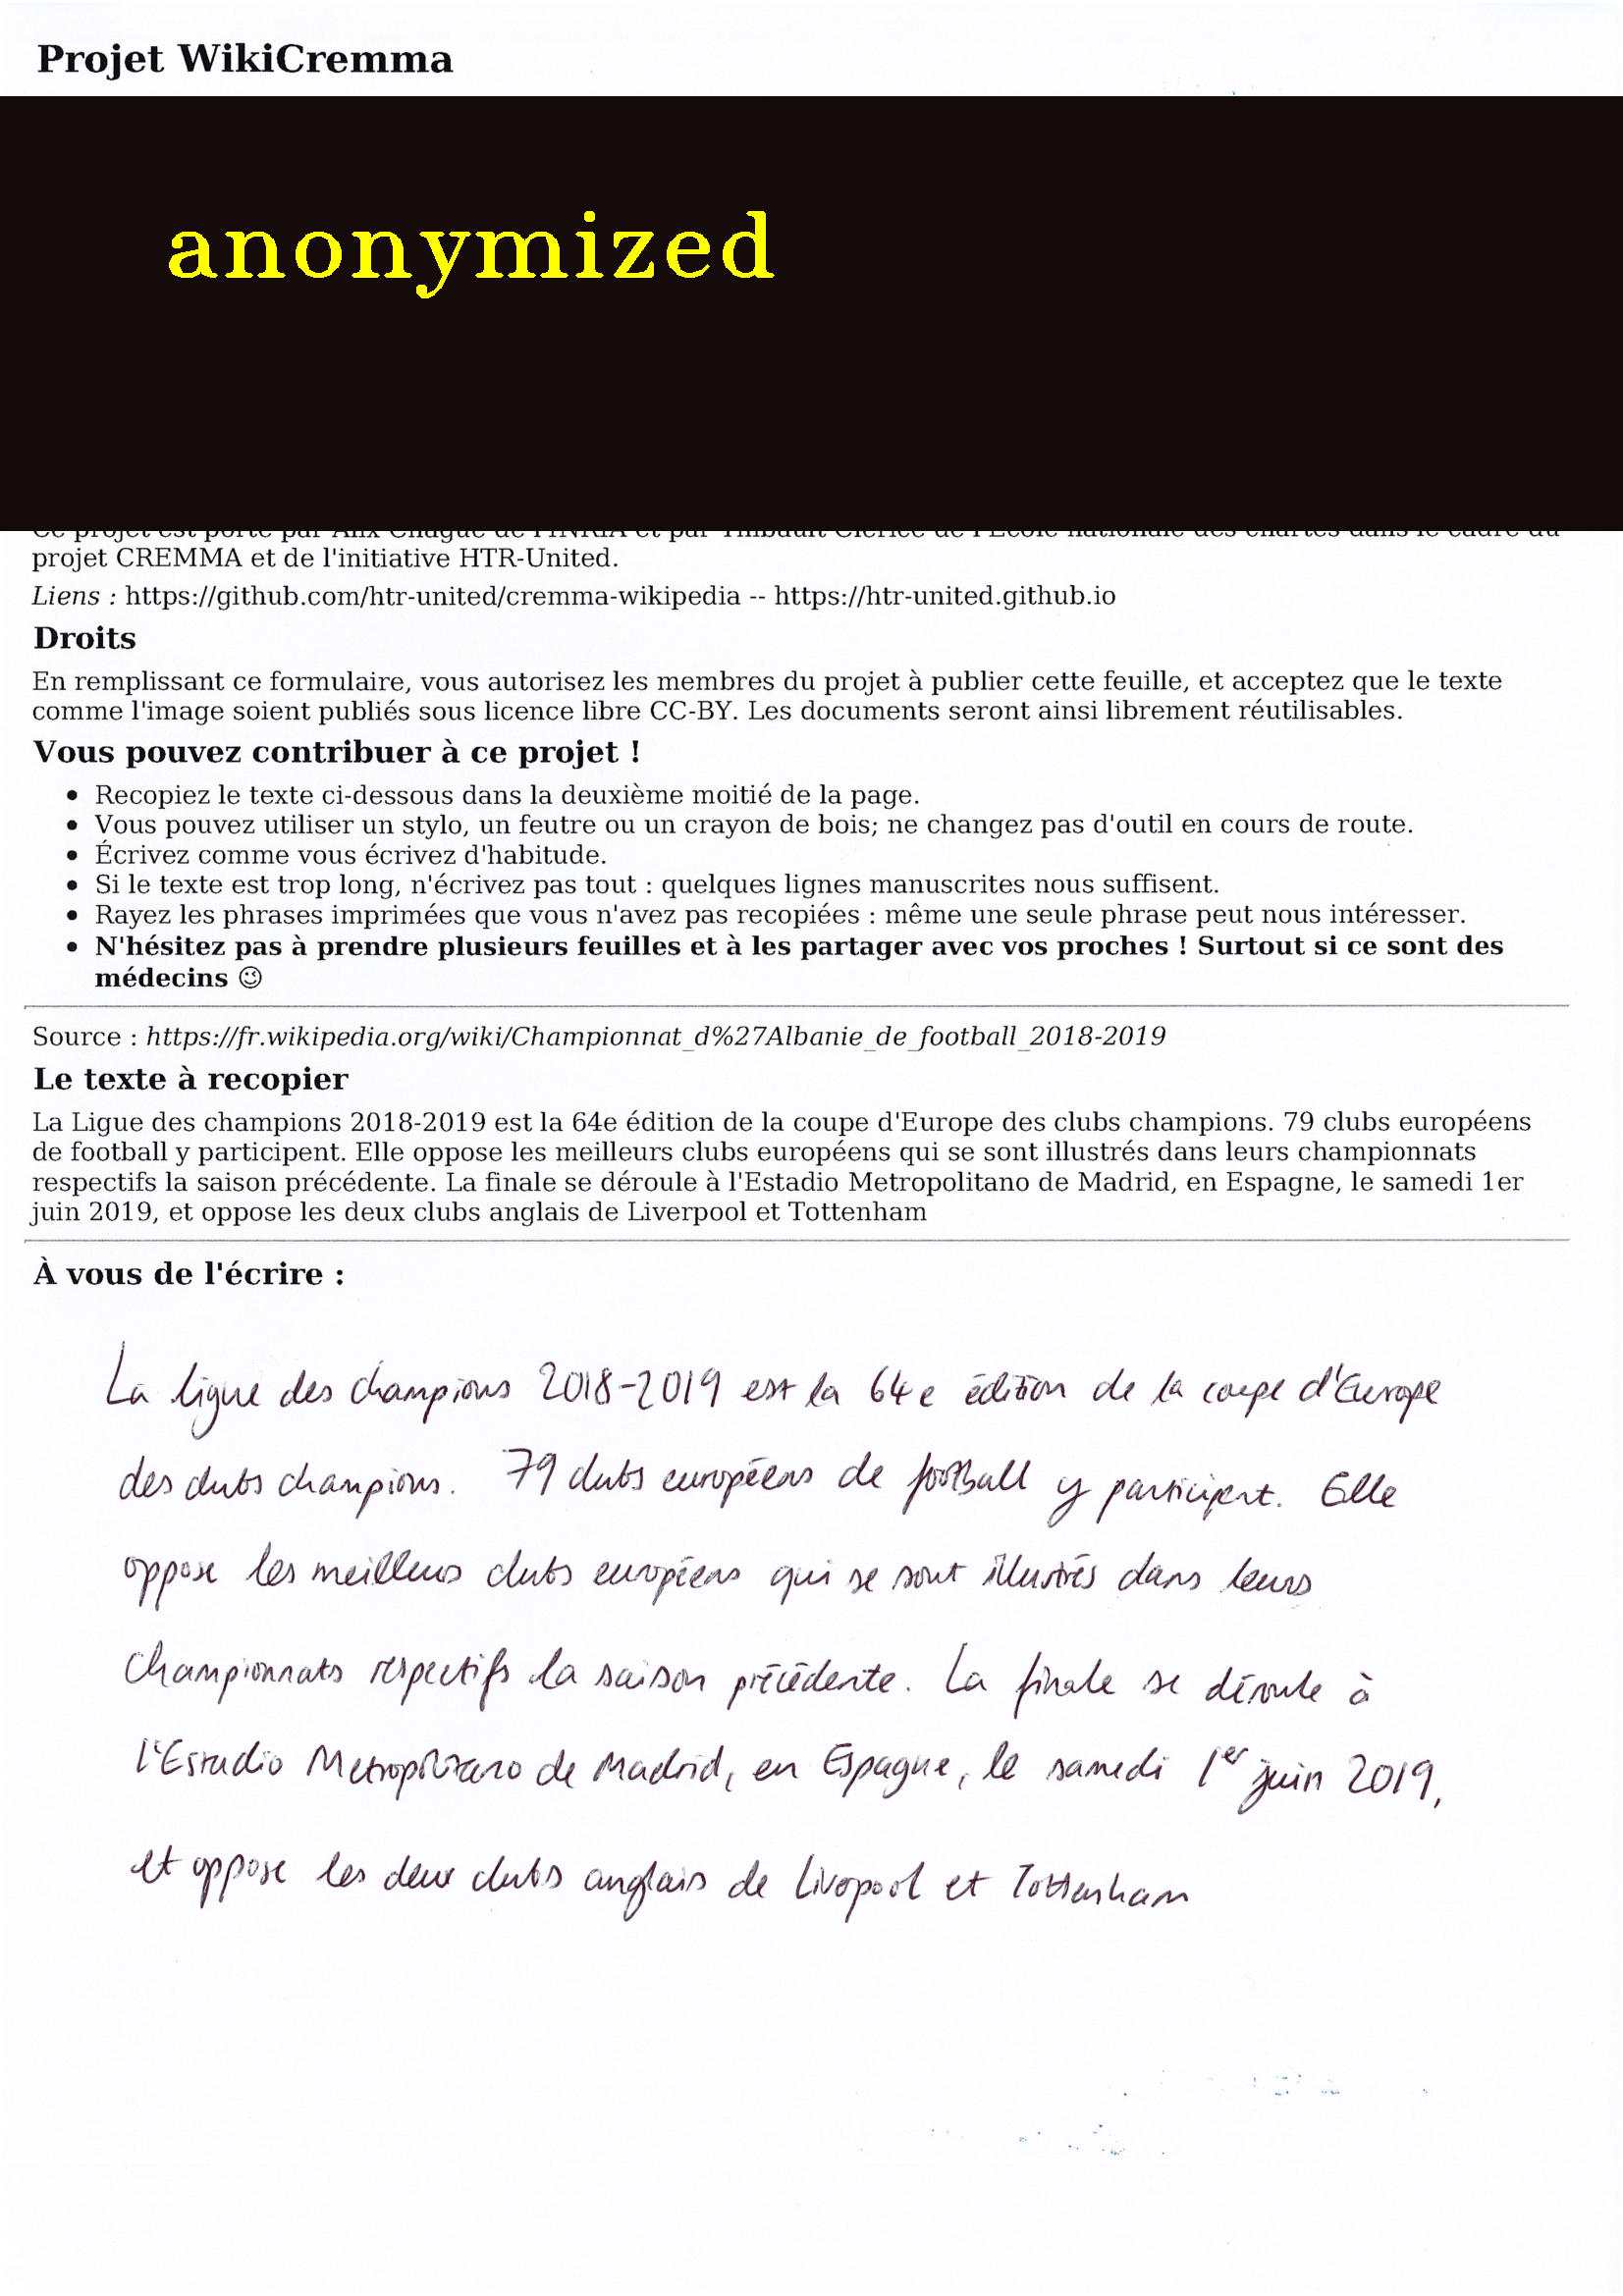 Projet WikiCremma
anonymized
Ce projet est porté par Alix Chagué de l'INRIA et par Thibault Clérice de l'École nationale des chartes dans le cadre du
projet CREMMA et de l'initiative HTR-United.
Liens : https://github.com/htr-united/cremma-wikipedia -- https://htr-united.github.io
Droits
En remplissant ce formulaire, vous autorisez les membres du projet à publier cette feuille, et acceptez que le texte
comme l'image soient publiés sous licence libre CC-BY. Les documents seront ainsi librement réutilisables.
Vous pouvez contribuer à ce projet !
• Recopiez le texte ci-dessous dans la deuxième moitié de la page.
• Vous pouvez utiliser un stylo, un feutre ou un crayon de bois; ne changez pas d'outil en cours de route.
• Écrivez comme vous écrivez d'habitude.
• Si le texte est trop long, n'écrivez pas tout : quelques lignes manuscrites nous suffisent.
• Rayez les phrases imprimées que vous n'avez pas recopiées : même une seule phrase peut nous intéresser.
• N'hésitez pas à prendre plusieurs feuilles et à les partager avec vos proches ! Surtout si ce sont des
médecins 😉
Source : https://fr.wikipedia.org/wiki/Championnat_d%27Albanie_de_football_2018-2019
Le texte à recopier
La Ligue des champions 2018-2019 est la 64e édition de la coupe d'Europe des clubs champions. 79 clubs européens
de football y participent. Elle oppose les meilleurs clubs européens qui se sont illustrés dans leurs championnats
respectifs la saison précédente. La finale se déroule à l'Estadio Metropolitano de Madrid, en Espagne, le samedi 1er
juin 2019, et oppose les deux clubs anglais de Liverpool et Tottenham
À vous de l'écrire :
La ligue des champions 2018-2019 est la 64e édition de la coupe d'Europe
des clubs champions. 79 clubs européens de football y participent. Elle
oppose les meilleurs clubs européens qui se sont illustrés dans leurs
championnats respectifs la saison précédente. La finale se déroule à
l'Estadio Metropolitano de Madrid, en Espagne, le samedi 1er juin 2019,
et oppose les deux clubs anglais de Livopool et Tottenham